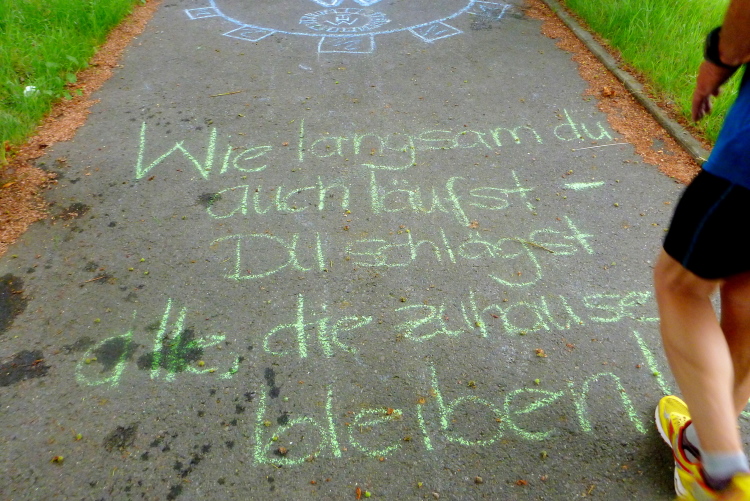 Wie langsam du
auch läufst -
Du schlägst
alle, die zuhause
bleiben!